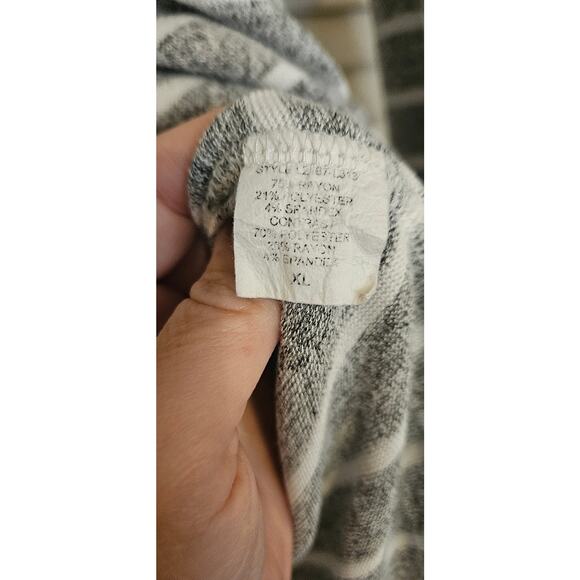 STYLE
75% RAYON
21% POLYESTER
4% SPANDEX
CONTRAST
70% POLYESTER
RAYON
4% SPANDEX
XL